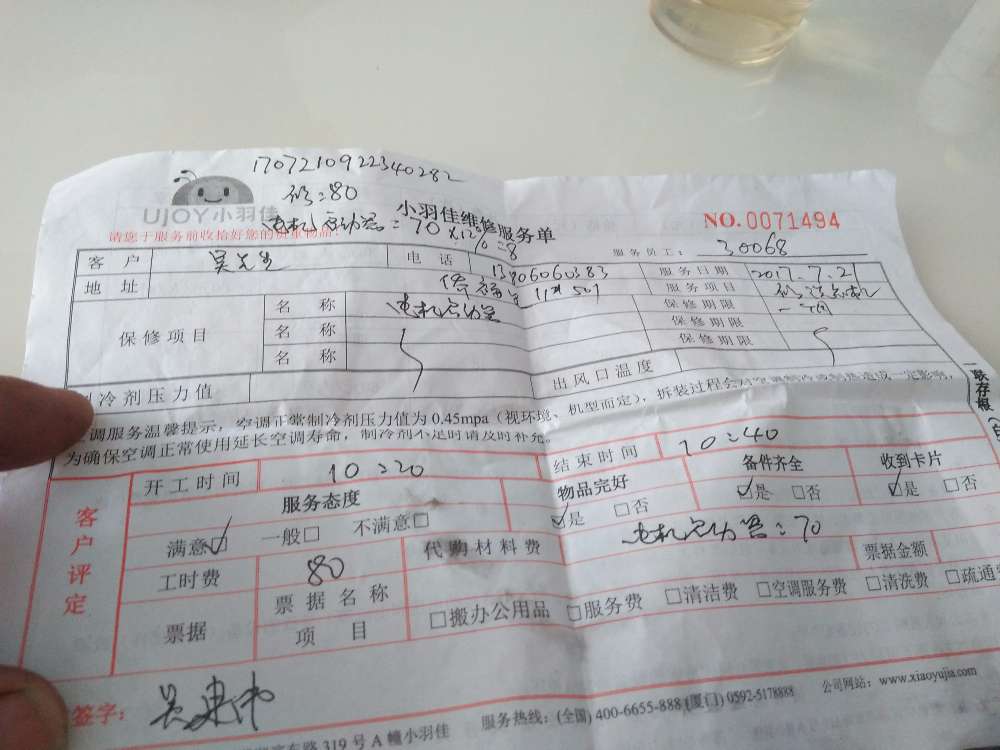 1707210922340282
80
UJOY小羽佳
小羽佳维修服务单
NO.0071494
电机启动器=70×12%=8
请您于服务前收拾好您的贵重物品!
服务员工: 30068
客户 吴先生 电话 服务日期 2017.7.21
地址 11栋501 服务项目
保修项目 名称 电机启动器 保修期限 一个月
名称 保修期限
名称 保修期限
制冷剂压力值 出风口温度
空调服务温馨提示,空调正常制冷剂压力值为0.45mpa(视环境、机型而定),拆装过程会对空调制冷剂造成一定影响,
为确保空调正常使用延长空调寿命,制冷剂不足时请及时补充。
一联存根
客户评定
开工时间 10:20 结束时间 10:40
服务态度 物品完好 备件齐全 收到卡片
满意☑ 一般□ 不满意□ ☑是 □否 ☑是 □否 ☑是 □否
工时费 80 代购材料费 电机启动器:70 票据金额
票据 票据名称 □搬办公用品 □服务费 □清洁费 □空调服务费 □清洗费 □疏通
项目
签字:
服务热线:(全国) 400-6655-888 (厦门) 0592-5178888 公司网站:www.xiaoyujia.com
东路319号A幢小羽佳